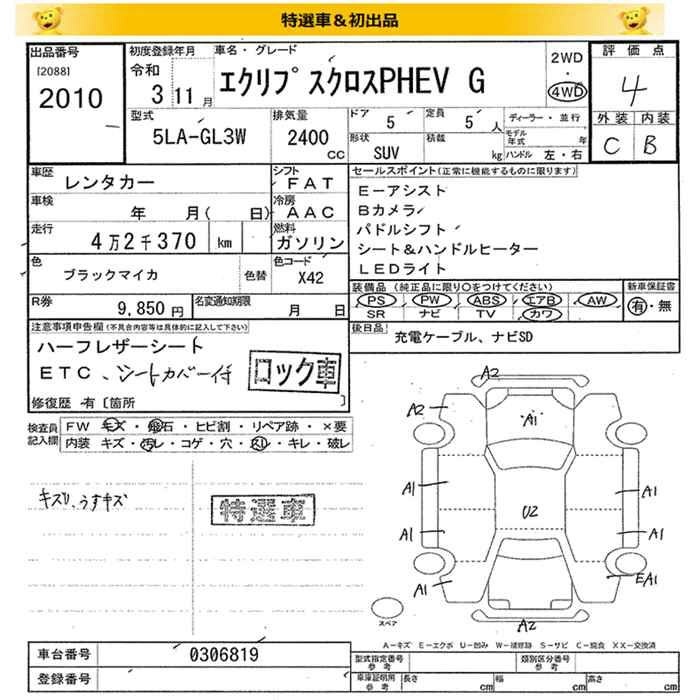 特選車＆初出品
出品番号
[2088]
2010
初度登録年月
令和
3 11月
車名・グレード
エクリプスクロスPHEV G
2WD
・
4WD
評価点
4
外装 内装
C B
型式
5LA-GL3W
排気量
2400
cc
ドア
5
定員
5人
形状
SUV
積載
kg
ディーラー・並行
モデル年式 年
ハンドル 左・右
車歴
レンタカー
シフト
FAT
車検
年 月( 日)
冷房
AAC
走行
4万2千370 km
燃料
ガソリン
色
ブラックマイカ
色替
色コード
X42
R券
9,850円
名変通知期限
月 日
セールスポイント(正常に機能するものに限ります)
E－アシスト
Bカメラ
パドルシフト
シート&ハンドルヒーター
LEDライト
装備品 (純正品に限り○をつけてください)
PS PW ABS エアB AW
SR ナビ TV カワ
新車保証書
有・無
後日品
充電ケーブル、ナビSD
注意事項申告欄(不具合内容等は具体的に記入して下さい)
ハーフレザーシート
ETC、シートカバー付
ロック車
修復歴 有〔箇所 〕
検査員記入欄
FW キズ・飛石・ヒビ割・リペア跡・×要
内装 キズ・汚レ・コゲ・穴・スレ・キレ・破レ
キズ、うすキズ
特選車
A2
A2
A1
A1
A1
U2
A1
A1
A1
EA1
A2
スペア
A－キズ E－エクボ U－凹み W－補修跡 S－サビ C－腐食 XX－交換済
車台番号
0306819
登録番号
型式指定番号
参考
類別区分番号
参考
車庫証明用
参考
長さ cm
幅 cm
高さ cm